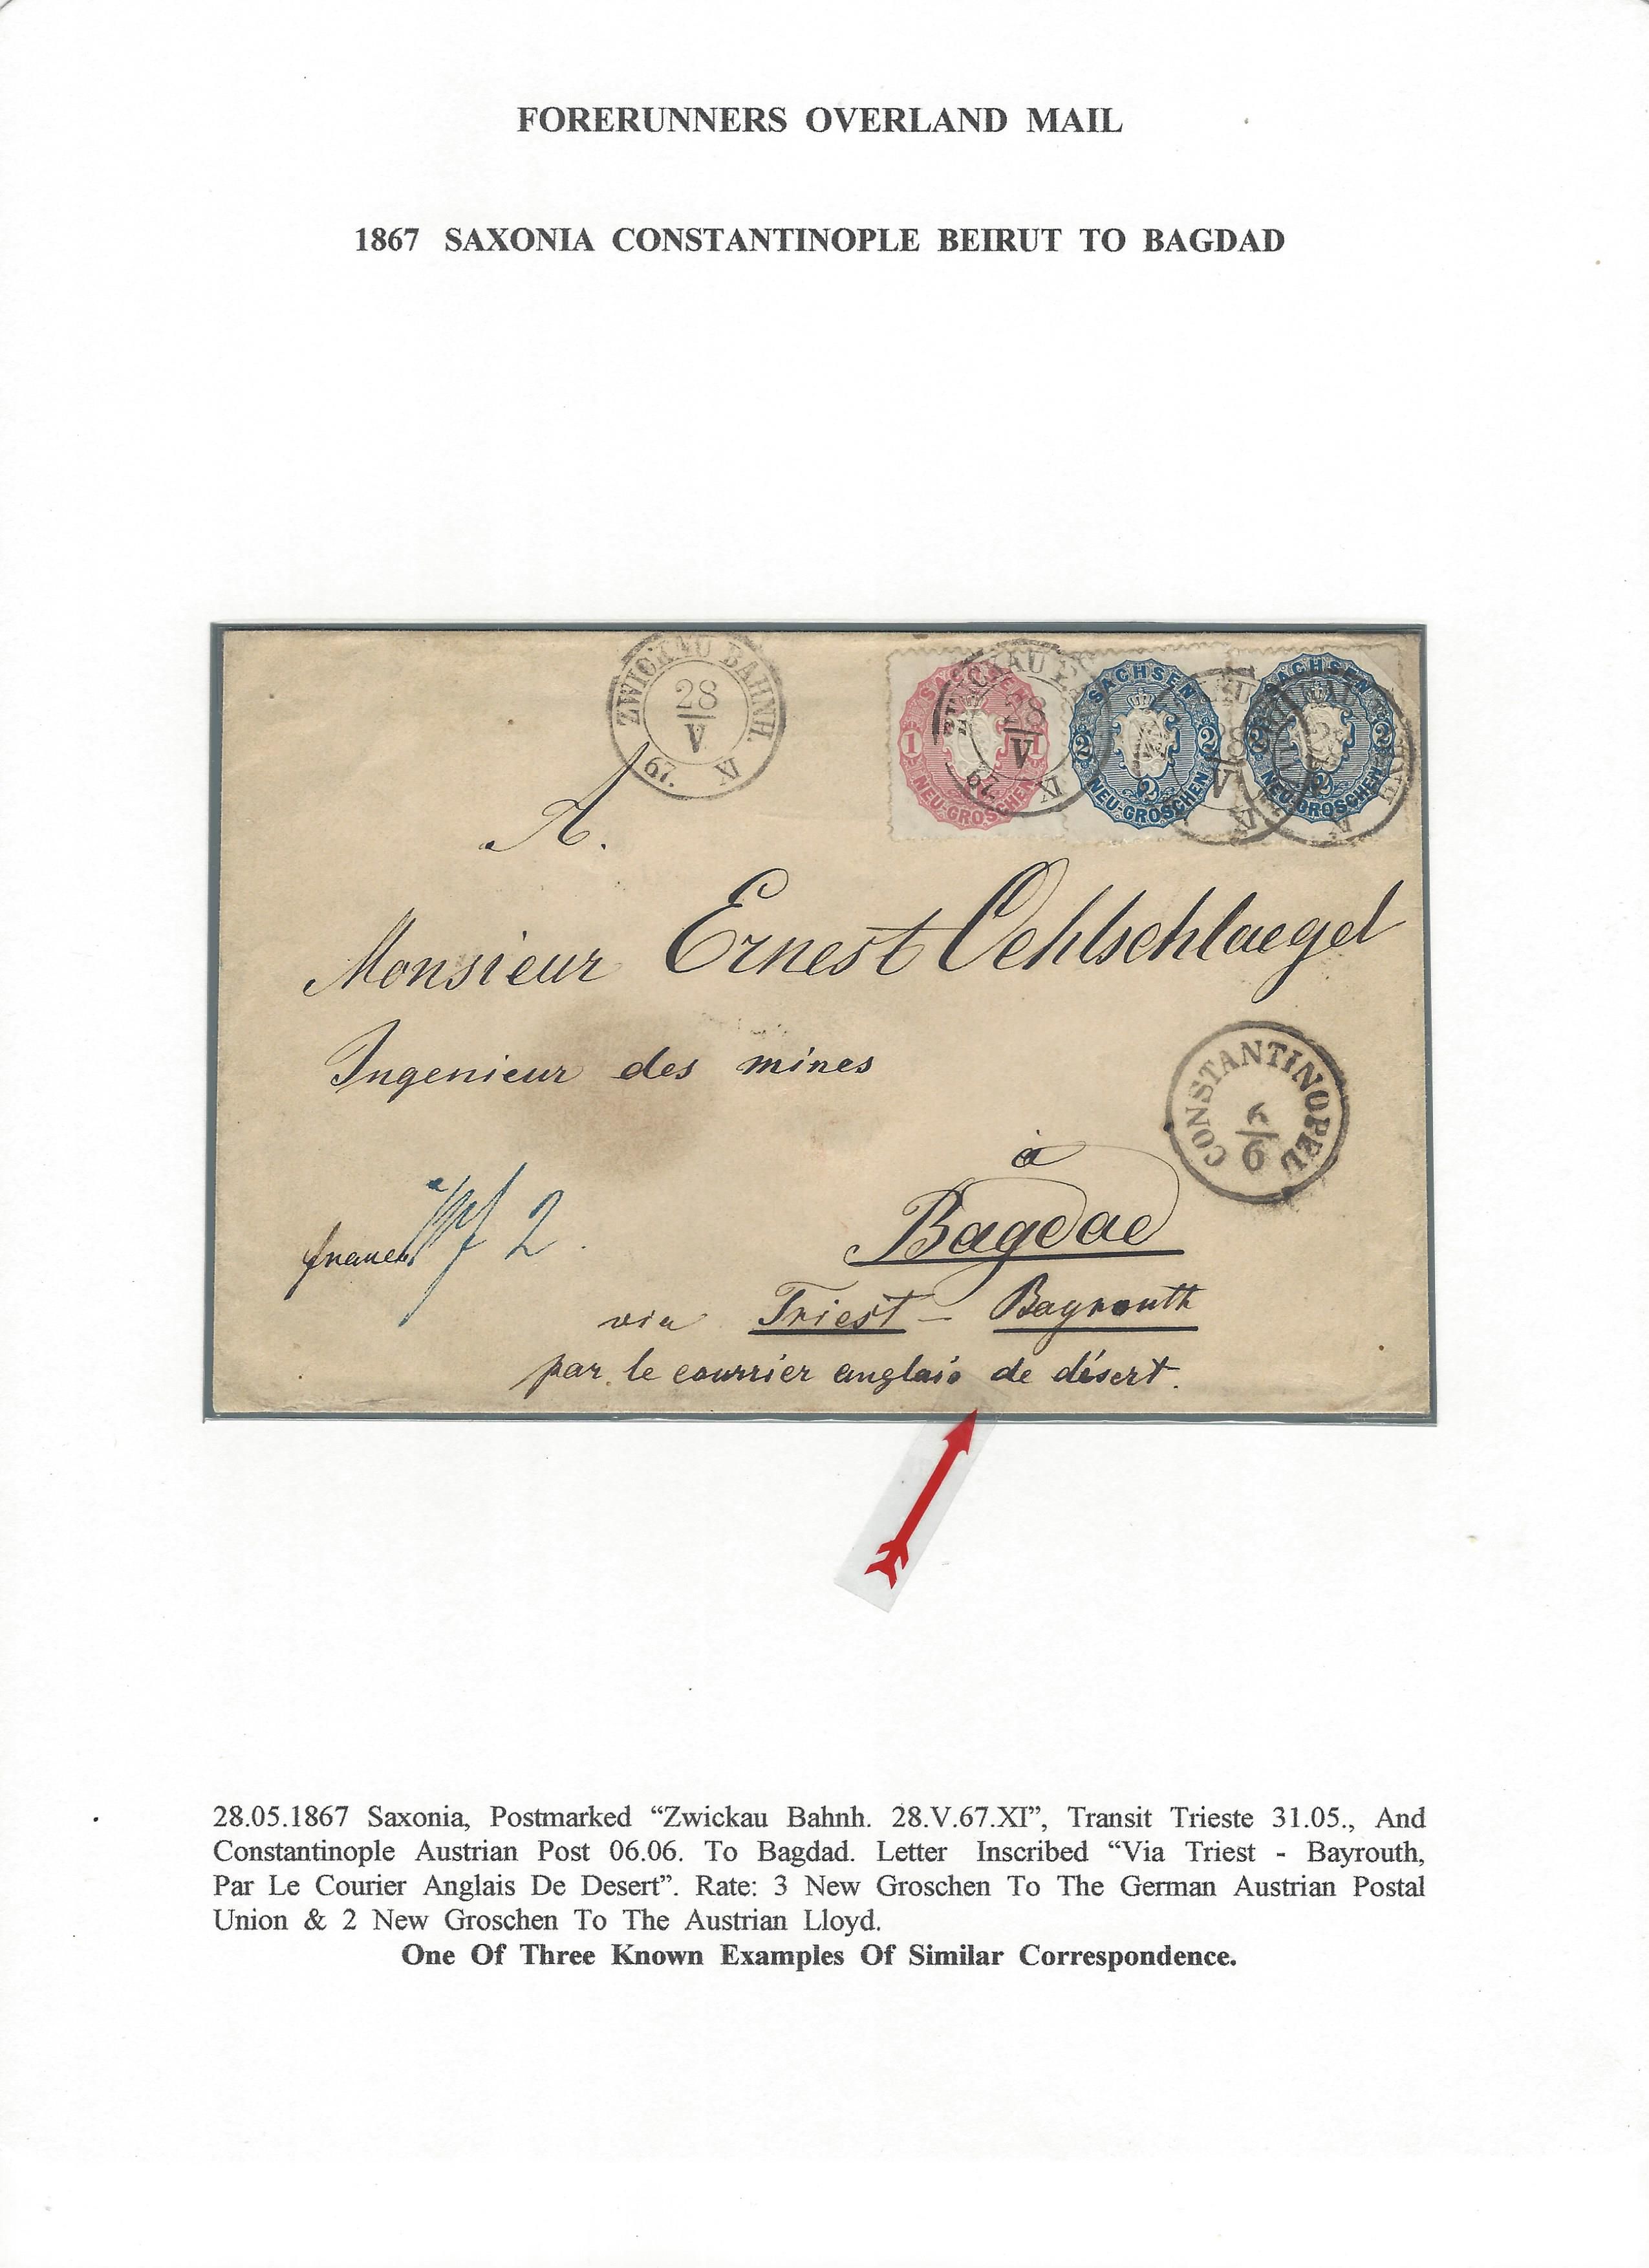 FORERUNNERS OVERLAND MAIL
1867 SAXONIA CONSTANTINOPLE BEIRUT TO BAGDAD
ZWICKAU BAHNH.
28
V
67. IX
SACHSEN
1 1
NEU-GROSCHEN
28
V
67. IX
SACHSEN
2 2
2
NEU-GROSCHEN
SACHSEN
2 2
2
NEU-GROSCHEN
A.
Monsieur Ernest Oehlschlaegel
Ingenieur des mines
CONSTANTINOPEL
6
6
à
Bagdad
franco
2
via Triest - Bayrouth
par le courrier anglais de désert.
28.05.1867 Saxonia, Postmarked “Zwickau Bahnh. 28.V.67.XI”, Transit Trieste 31.05., And
Constantinople Austrian Post 06.06. To Bagdad. Letter Inscribed “Via Triest - Bayrouth,
Par Le Courier Anglais De Desert”. Rate: 3 New Groschen To The German Austrian Postal
Union & 2 New Groschen To The Austrian Lloyd.
One Of Three Known Examples Of Similar Correspondence.